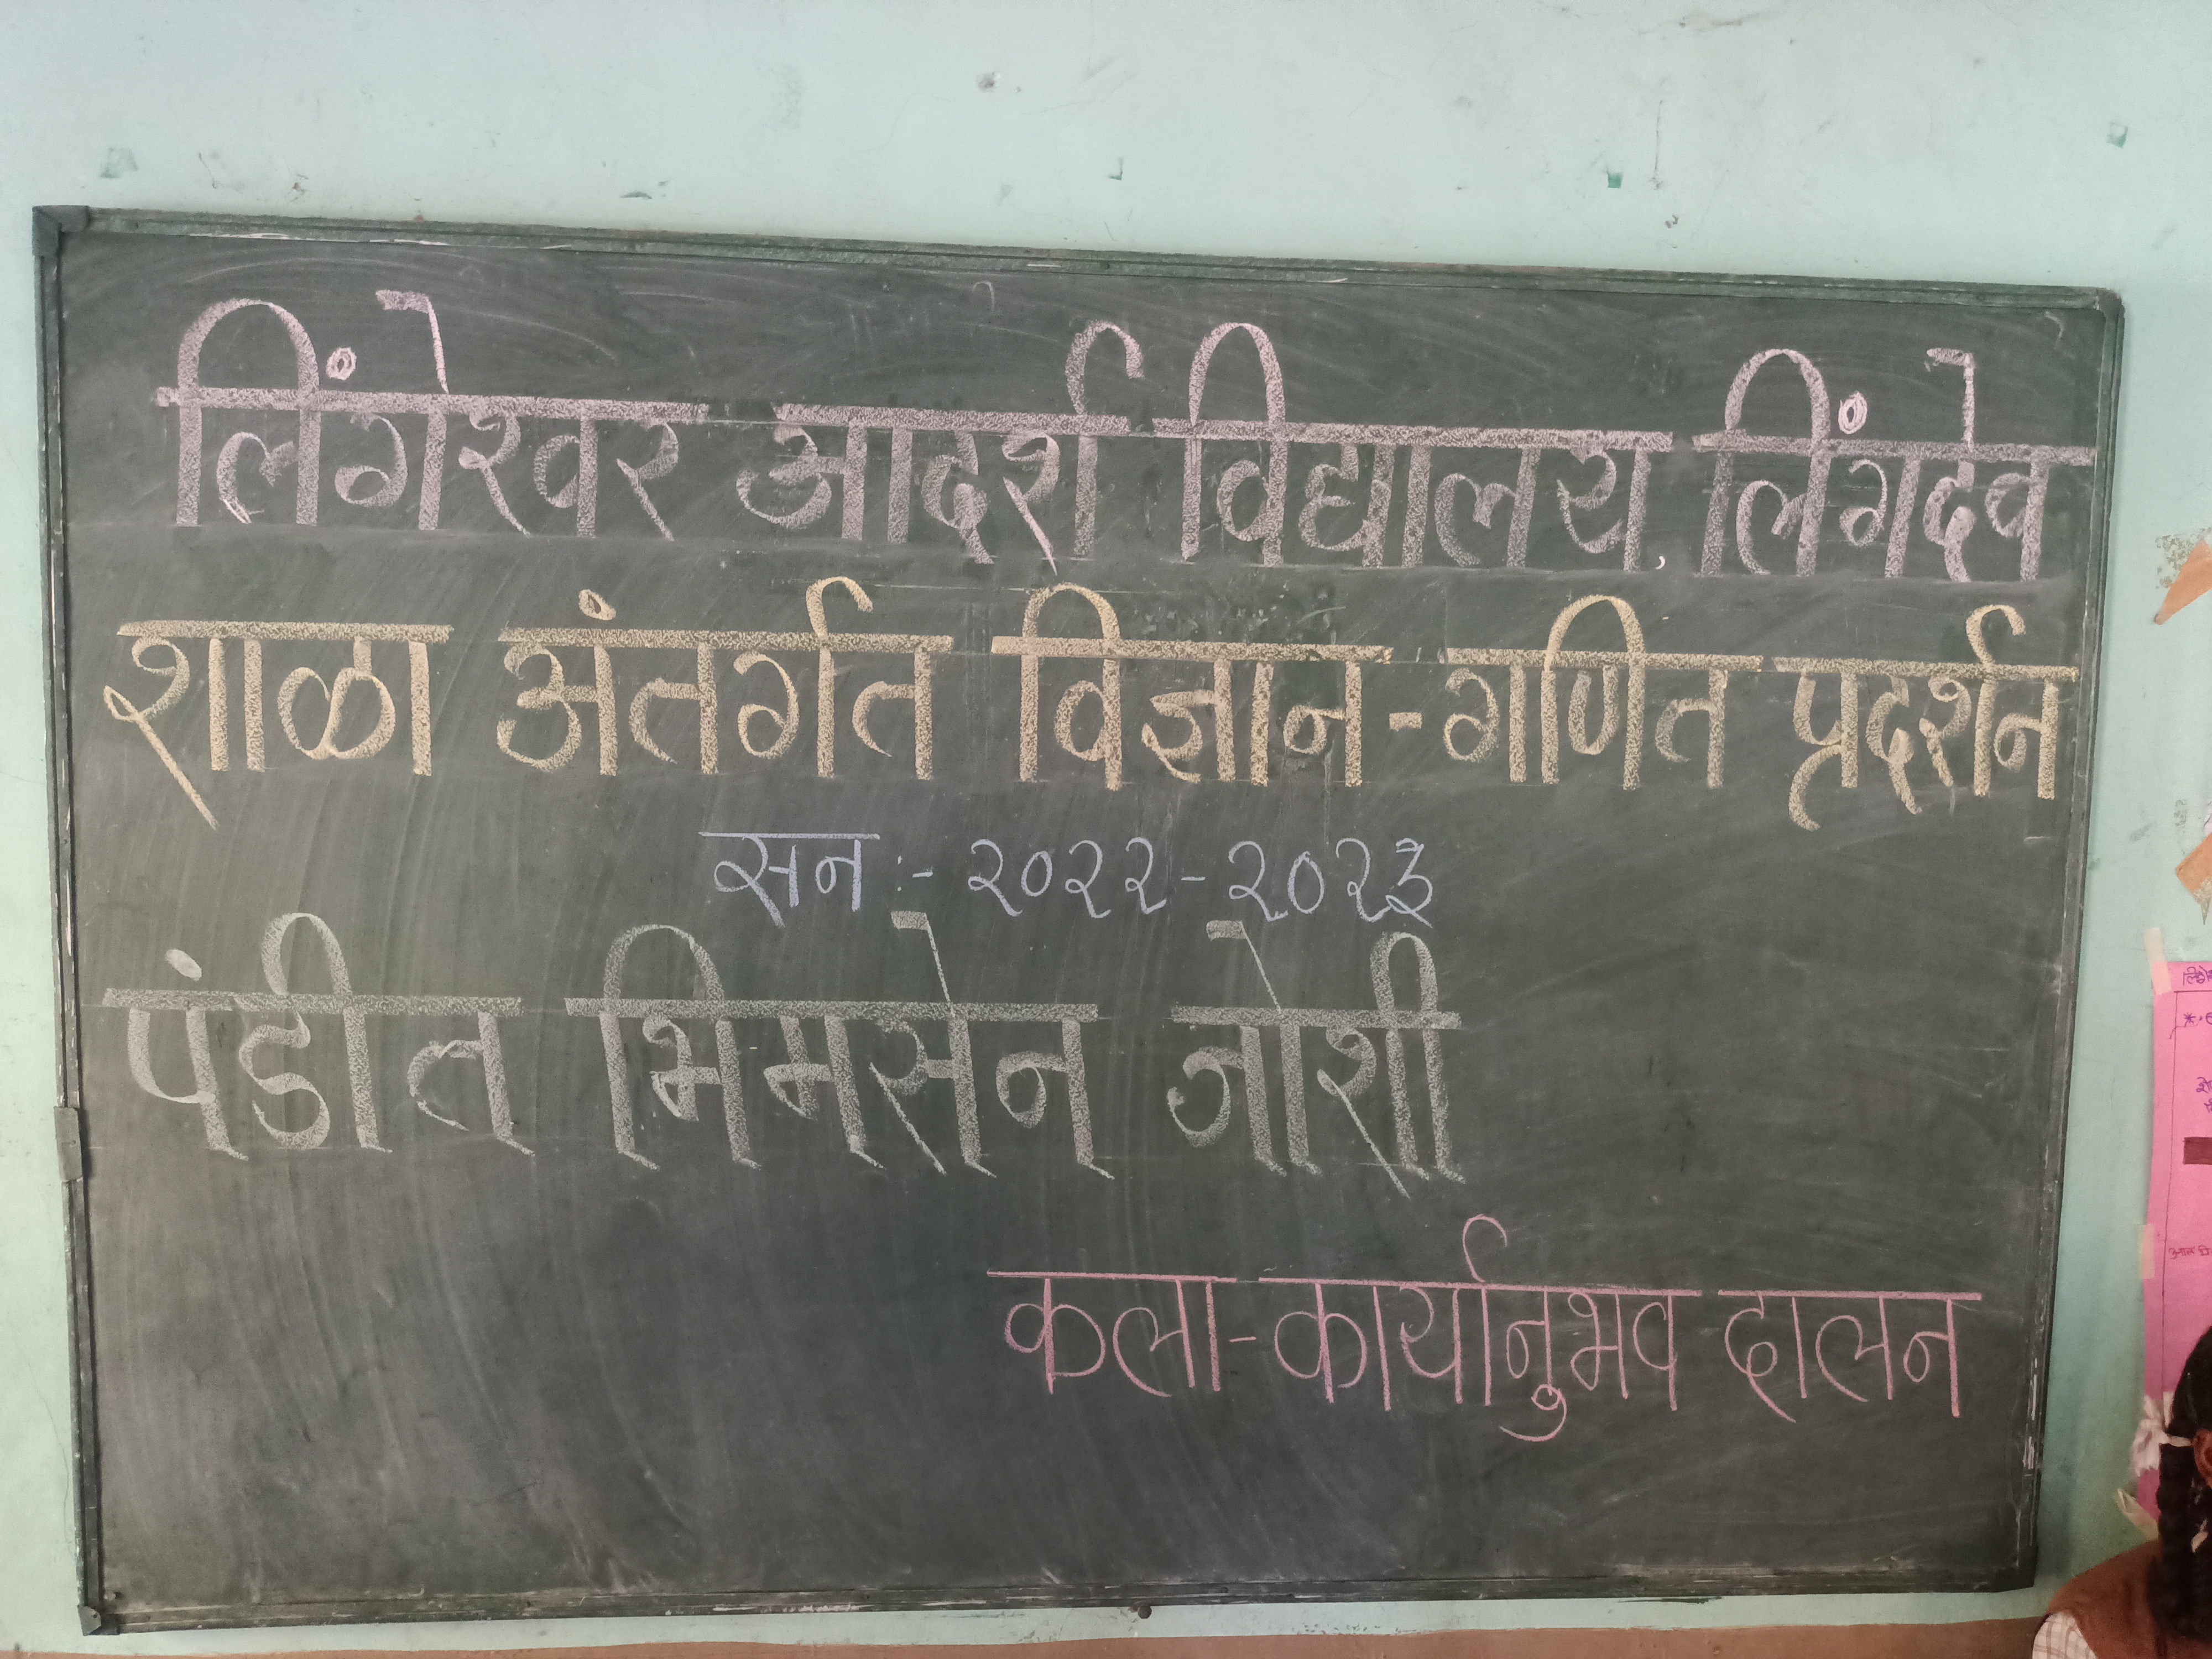 लिंगेश्वर आदर्श विद्यालय, लिंगदेव
शाळा अंतर्गत विज्ञान-गणित प्रदर्शन
सन :- २०२२-२०२३
पंडीत भिमसेन जोशी
कला-कार्यानुभव दालन